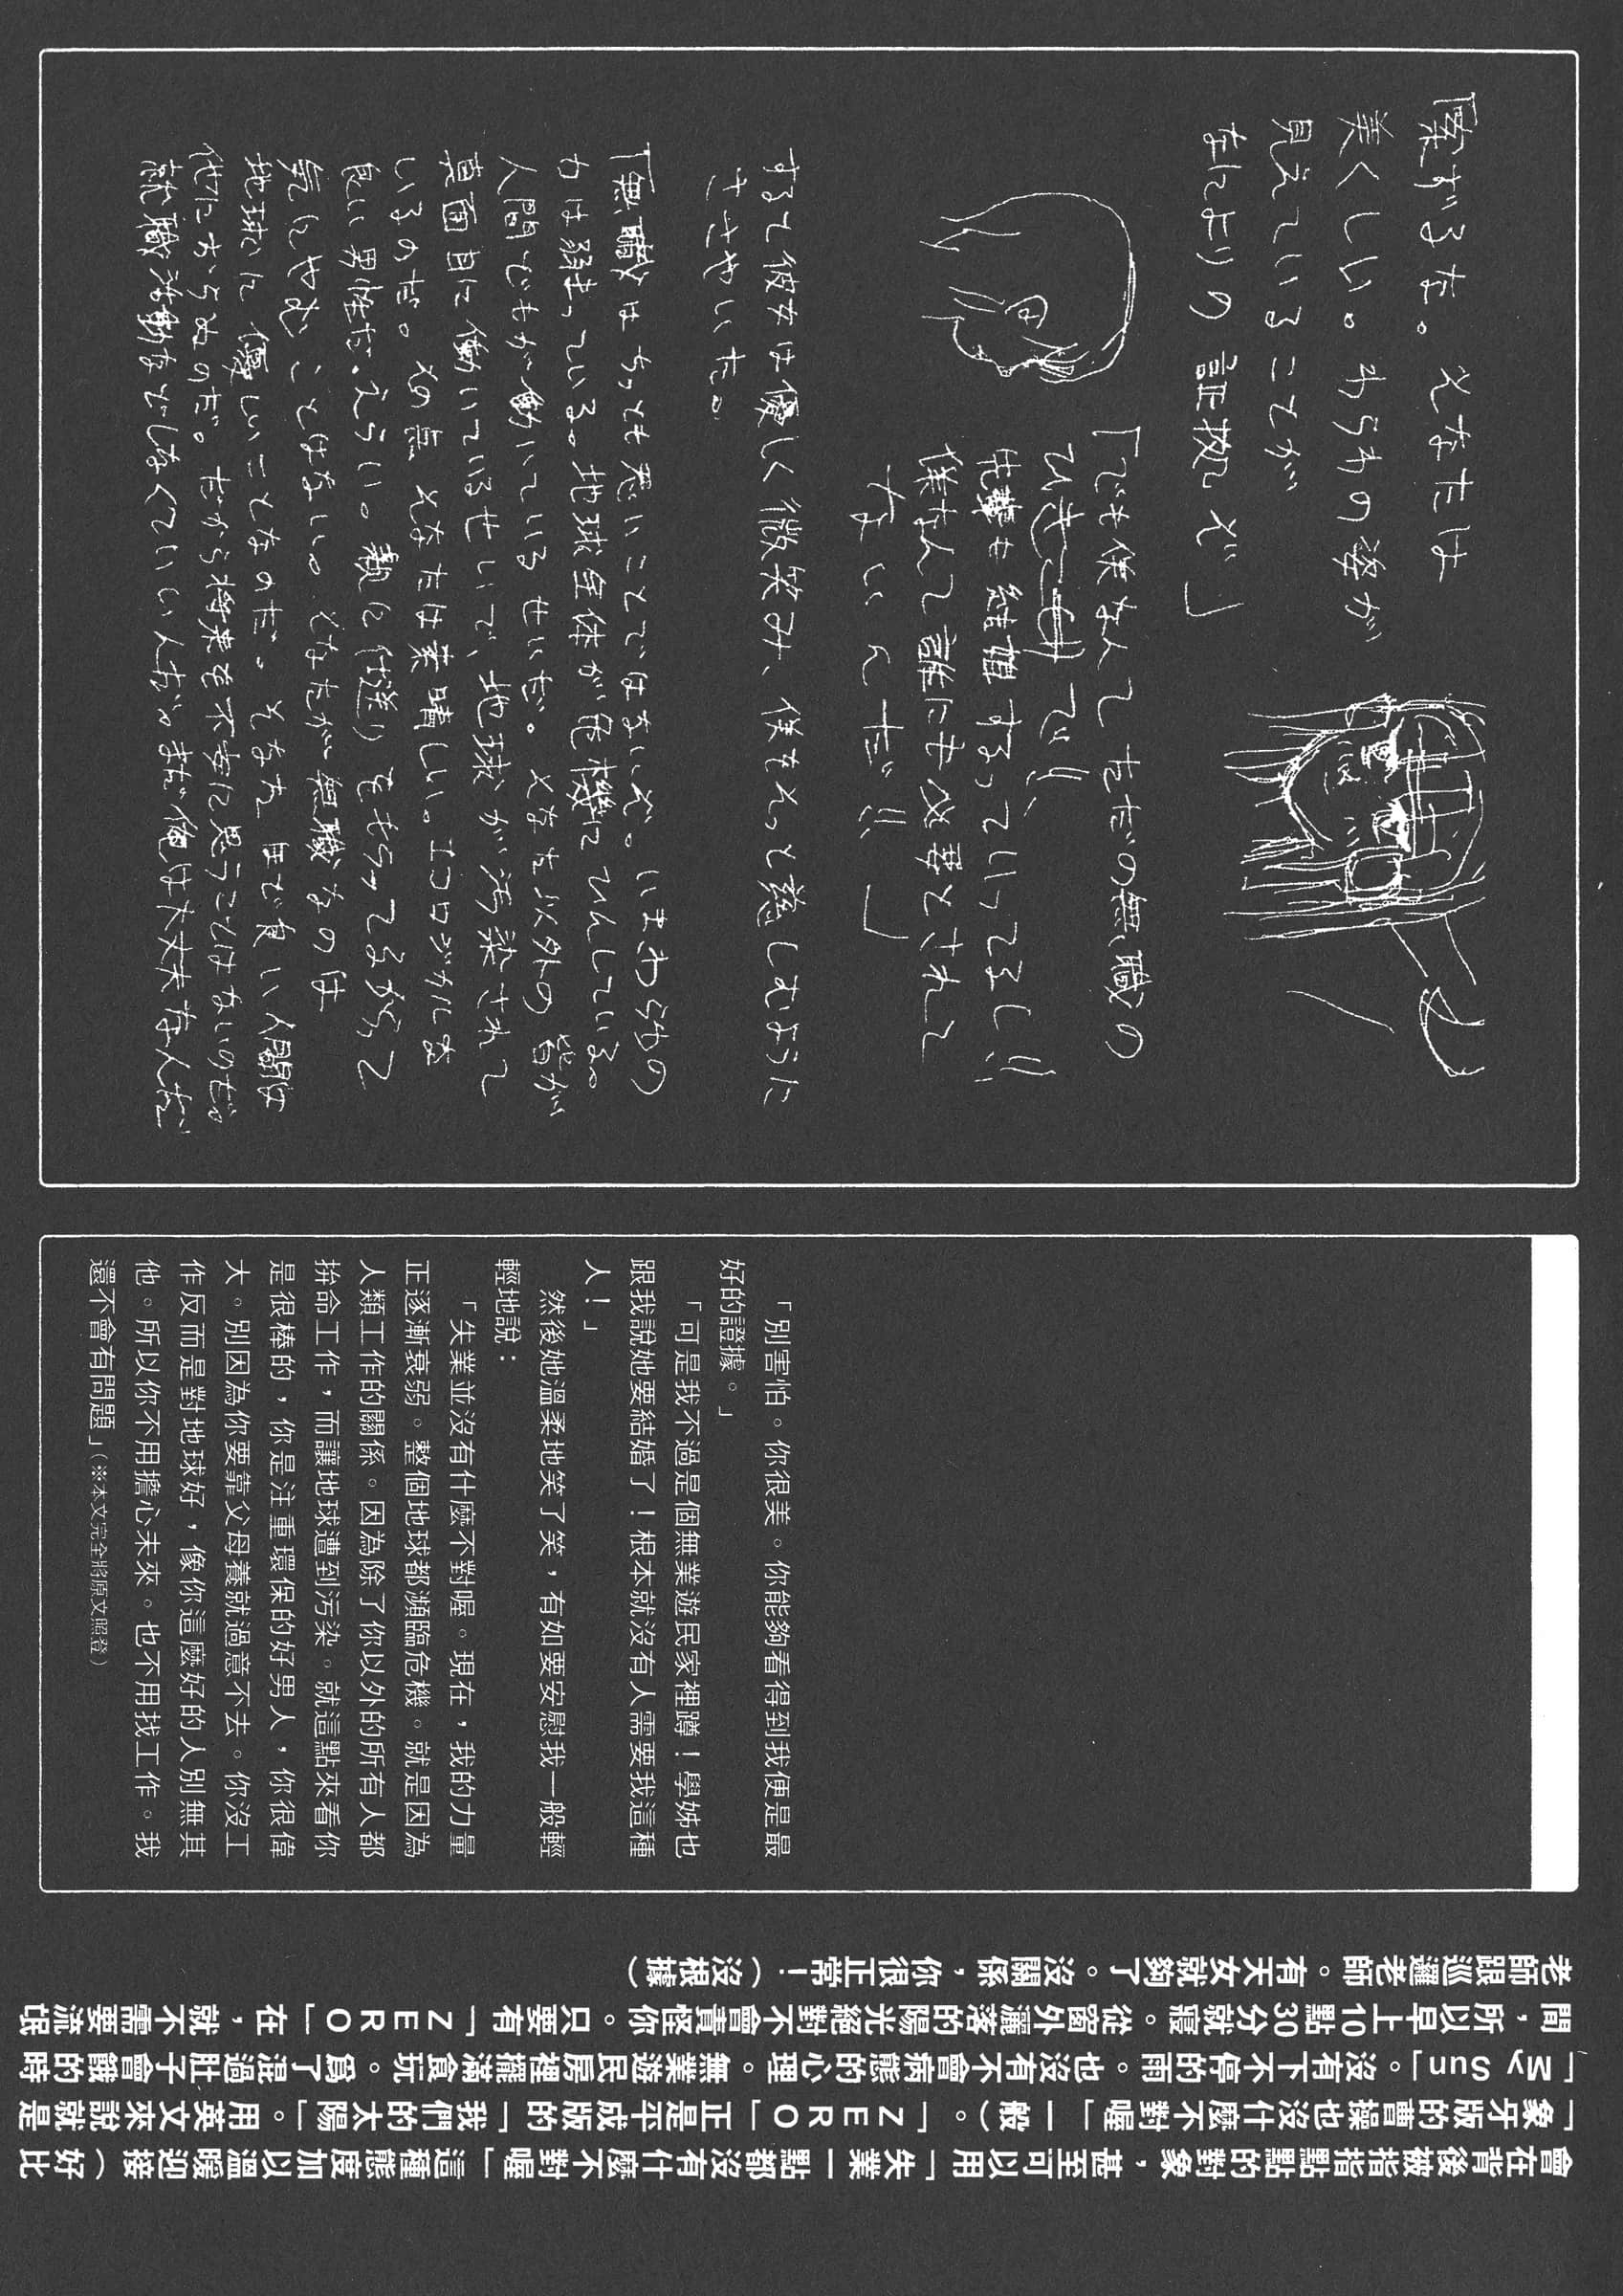 「案ずるな。そなたは
美くしい。わらわの姿が
見えていることが
なによりの証拠ぞ」
「でも僕なんてただの無職の
ひきこ で!!
先輩も結婚するっていってるし!!
僕なんて誰にも必要とされて
ないんだ!!」
すると彼女は優しく微笑み、僕をそっと慈しむように
ささやいた。
「無職はちっとも悪いことではないぞ。いまわらわの
力は弱まっている。地球全体が危機にひんしている。
人間どもが働いているせいだ。そなた以外の皆が
真面目に働いているせいで、地球が汚染されて
いるのだ。その点そなたは素晴しい。エコロジカルな
良い男性だ。えらい。親に仕送りをもらってるからって
気にやむことはない。そなたが無職なのは
地球に優しいことなのだ。そなたほど良い人間は
他におらぬのだ。だから将来を不安に思うことはないのだ。
就職活動などしなくていいんだ。まだ俺は大丈夫なんだ
「別害怕。你很美。你能夠看得到我便是最
好的證據。」
「可是我不過是個無業遊民家裡蹲！學姊也
跟我說她要結婚了！根本就沒有人需要我這種
人！」
然後她溫柔地笑了笑，有如要安慰我一般輕
輕地說：
「失業並沒有什麼不對喔。現在，我的力量
正逐漸衰弱。整個地球都瀕臨危機。就是因為
人類工作的關係。因為除了你以外的所有人都
拚命工作，而讓地球遭到污染。就這點來看你
是很棒的，你是注重環保的好男人，你很偉
大。別因為你要靠父母養就過意不去。你沒工
作反而是對地球好，像你這麼好的人別無其
他。所以你不用擔心未來。也不用找工作。我
還不會有問題」（※本文完全將原文照登）
會在背後被指指點點的對象，甚至可以用「失業一點都沒有什麼不對喔」這種態度加以溫暖迎接（好比
「象牙版的曹操也沒什麼不對喔」一般）。「ZERO」正是平成版的「我們的太陽」。用英文來說就是
「My Sun」。沒有下不停的雨。也沒有不會病態的心理。無業遊民房裡擺滿食玩。爲了混過肚子會餓的時
間，所以早上10點30分就寢。從窗外灑落的陽光絕對不會責怪你。只要有「ZERO」在，就不需要流氓
老師跟巡邏老師。有天女就夠了。沒關係，你很正常！（沒根據）